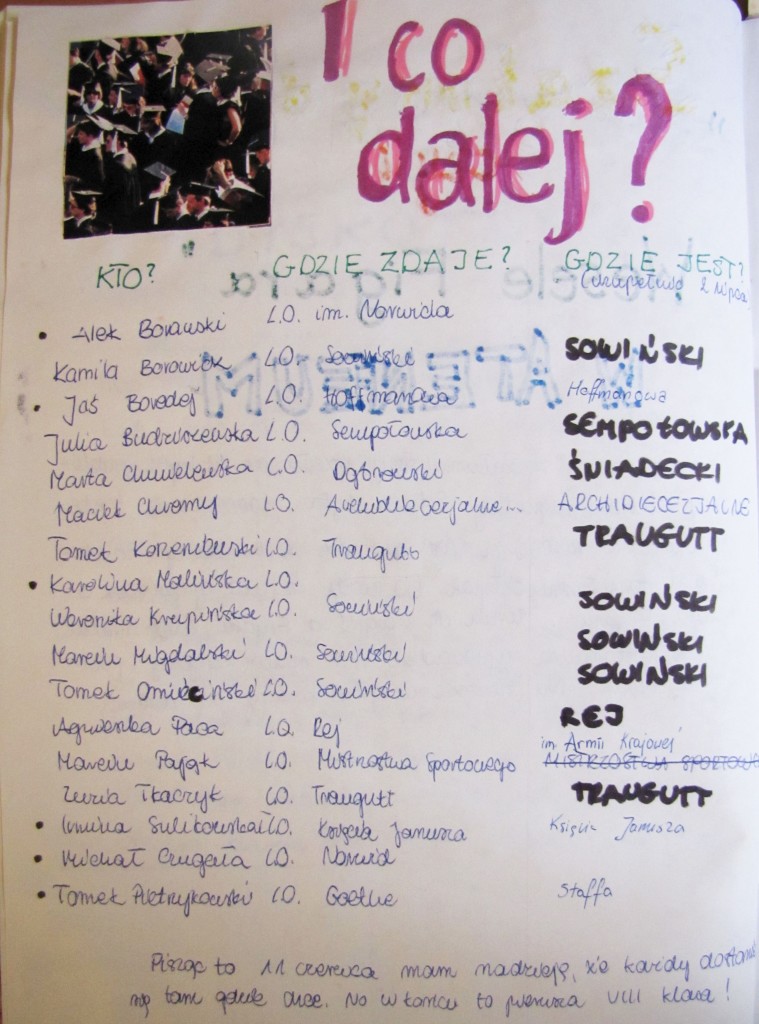 I co
dalej?
KTO? GDZIE ZDAJE? GDZIE JEST?
(uzupełniono 2 lipca)
• Alek Borawski L.O. im. Norwida
Kamila Borowiek L.O. Sowiński SOWIŃSKI
• Jaś Borodej L.O. Hoffmanowa Hoffmanowa
Julia Budziszewska L.O. Sempołowska SEMPOŁOWSKA
Marta Chmielewska L.O. Dąbrowski ŚNIADECKI
Maciek Chromy L.O. Archidiecezjalne... ARCHIDIECEZJALNE
Tomek Korzeniewski L.O. Traugutt TRAUGUTT
• Karolina Malińska L.O.
Weronika Krupińska L.O. Sowiński SOWIŃSKI
Marcin Migdalski L.O. Sowiński SOWIŃSKI
Tomek Omieciński L.O. Sowiński SOWIŃSKI
Agnieszka Paca L.O. Rej REJ
im Armii Krajowej
Marcin Pająk L.O. Mistrzostwa Sportowego MISTRZOSTWA SPORTOW
Zuzia Tkaczyk L.O. Traugutt TRAUGUTT
• Sulikowska L.O. Księcia Janusza Księcia Janusza
• Michał L.O. Norwid
• Tomek Pietrzykowski L.O. Goethe Staffa
Pisząc to 11 czerwca mam nadzieję, że każdy dostanie
się tam gdzie chce. No w końcu to pierwsza VIII klasa!